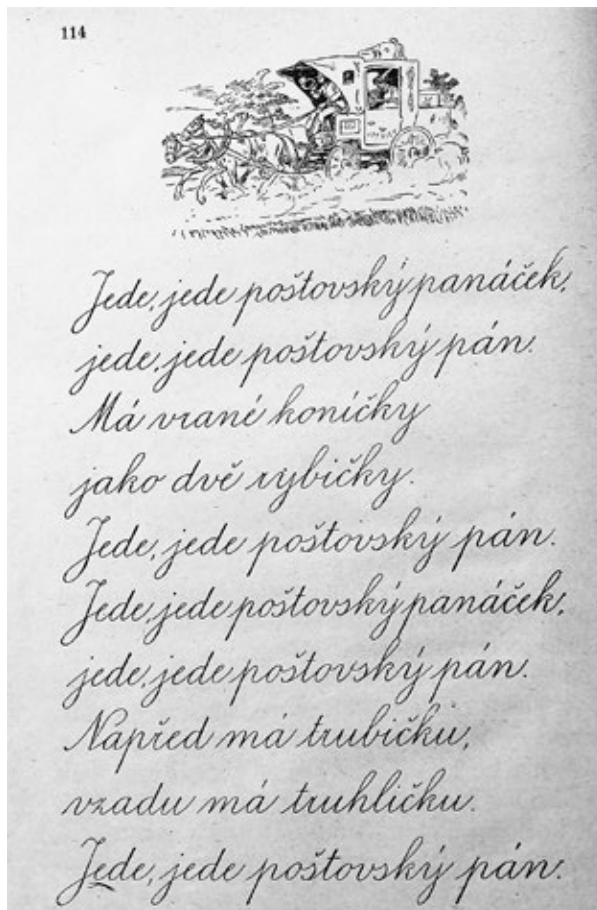 114
Jede, jede poštovský panáček,
jede, jede poštovský pán.
Má vrané koníčky
jako dvě rybičky.
Jede, jede poštovský pán.
Jede, jede poštovský panáček,
jede, jede poštovský pán.
Napřed má trubičku,
vzadu má truhličku.
Jede, jede poštovský pán.